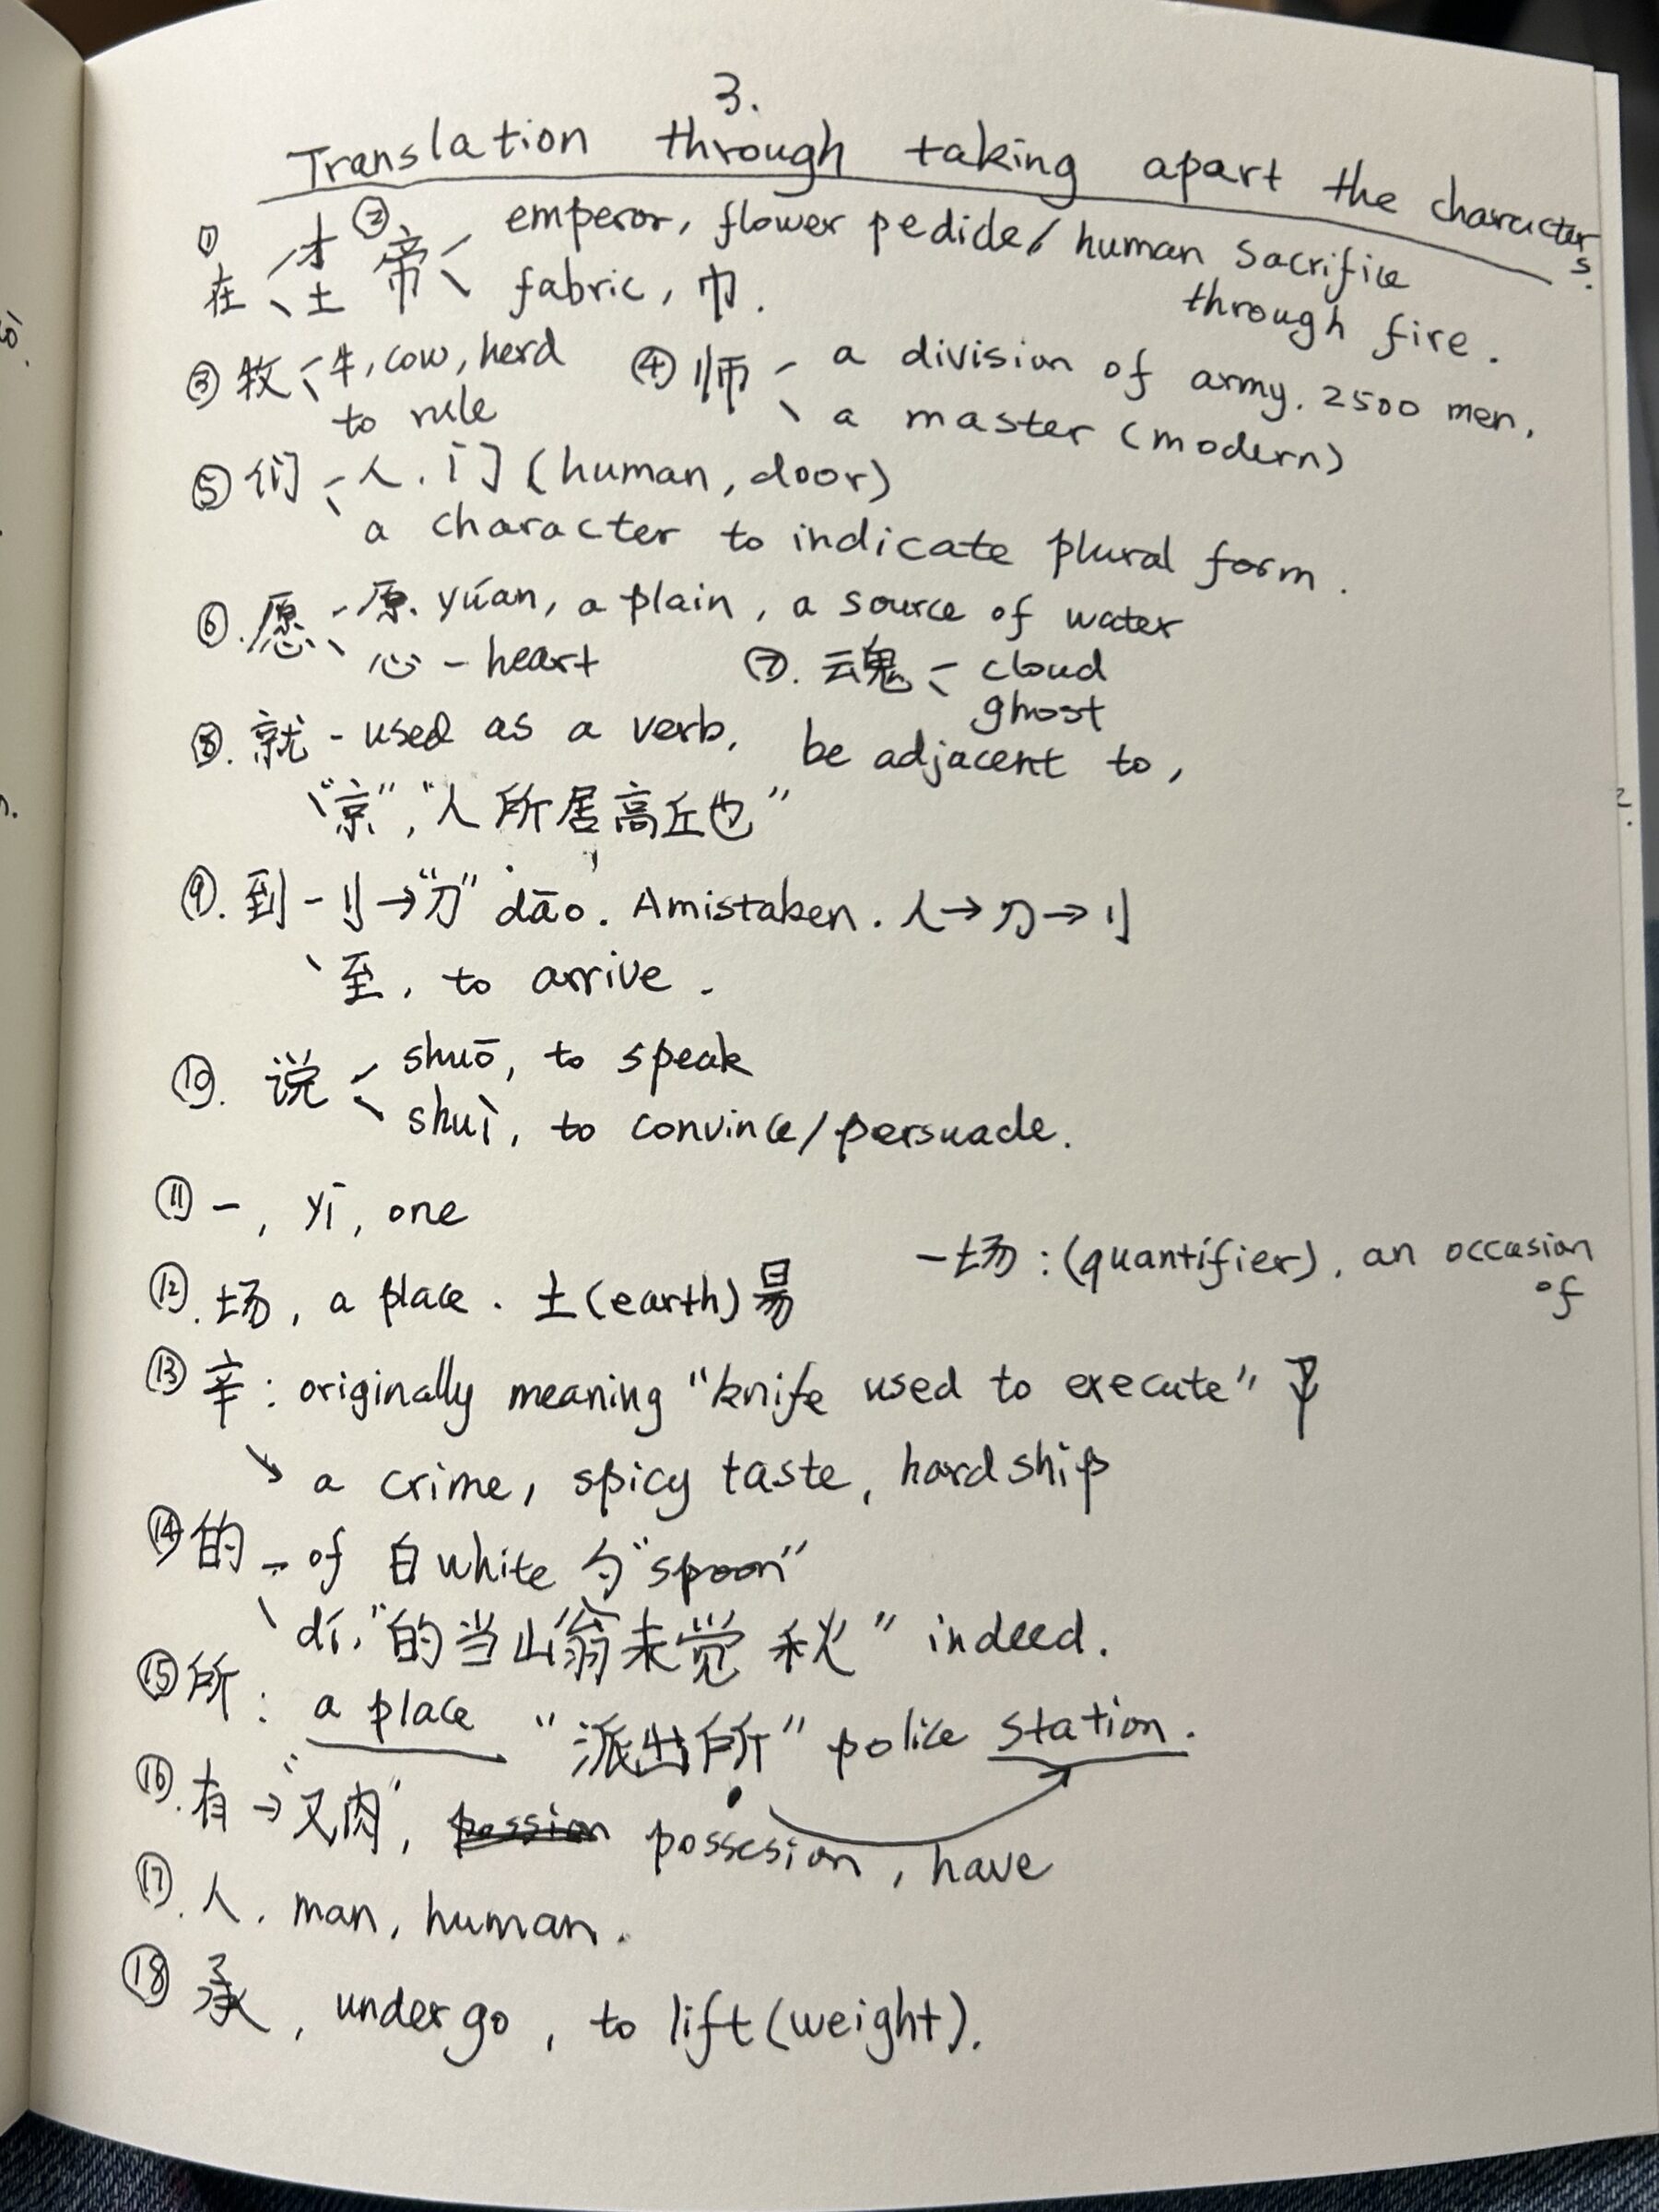 3.
Translation through taking apart the characters.
① 在 才 土 ② 帝 emperor, flower pedicle/ human sacrifice through fire.
fabric, 巾.
③ 牧 牛, cow, herd ④ 师 a division of army. 2500 men.
to rule a master (modern)
⑤ 们 人. 门 (human, door)
a character to indicate plural form.
⑥. 愿 原. yúan, a plain, a source of water
心 - heart ⑦. 魂 cloud
ghost
⑧. 就 - used as a verb, be adjacent to,
"京", "人所居高丘也"
⑨. 到 - 刂 → "刀" dāo. A mistaken. 人 → 刀 → 刂
至, to arrive.
⑩. 说 shuō, to speak
shuì, to convince/persuade.
⑪ 一, yī, one
一场: (quantifier), an occasion of
⑫. 场, a place. 土 (earth) 昜
⑬ 辛: originally meaning "knife used to execute"
↘ a crime, spicy taste, hardship
⑭ 的 - of 白 white 勺 "spoon"
dí, "的当山翁未觉秋" indeed.
⑮ 所: a place "派出所" police station.
⑯. 有 → "又肉", possesion, have
⑰. 人. man, human.
⑱ 承, undergo, to lift (weight).